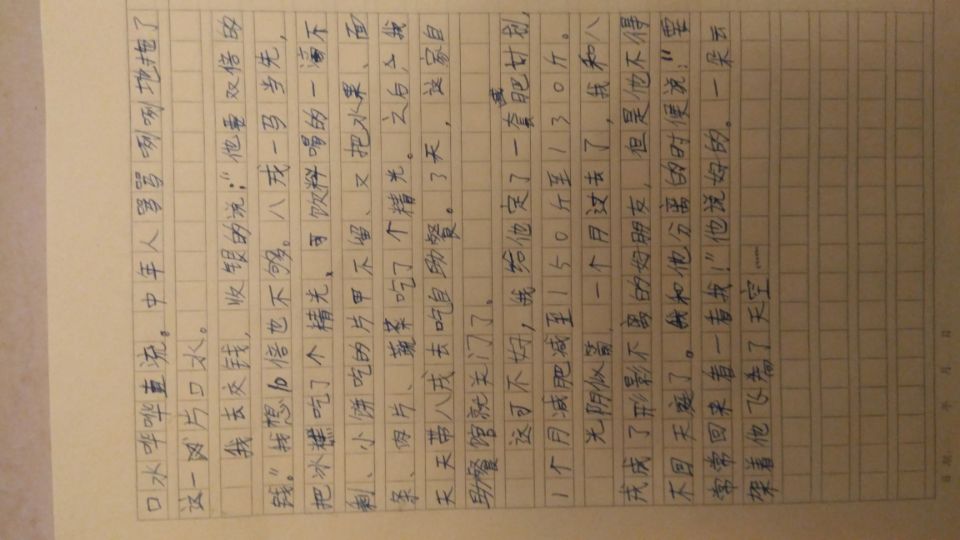 口水哗哗直流。中年人骂骂咧咧地拖了
这一片口水。
我去交钱,收银的说:"他要双倍的
钱。"我想10倍也不够。八戒一马当先,
把冰糕吃了个精光,可饮料喝的一滴不
剩、小饼吃的片甲不留、又把水果、面
条、肉片、蔬菜吃了个精光。之后,我
天天带八戒去吃自助餐。3天,这家自
助餐馆就关门了。
这可不好,我给他定了一套减肥计划,
1个月减肥减至150斤至130斤。
光阴似箭,一个月过去了,我和八
戒成了形影不离的好朋友,但是他不得
不回天庭了。我和他分离的时便说:"要
常常回来看一看我!"他说好的。一朵云
架着他飞上了天空……
年 月 日